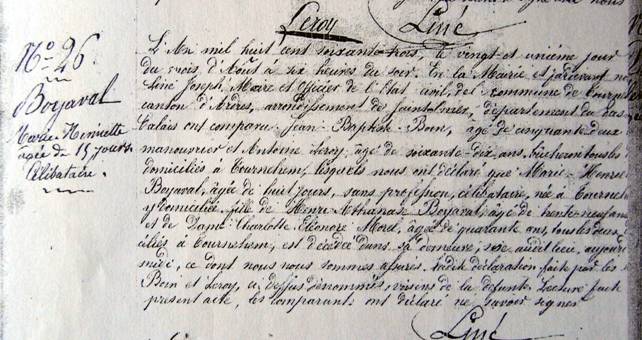 Leroy Liné
No. 26.
Boyaval
Marie-Henriette
agée de 15 jours
Célibataire.
L'An mil huit cent soixante-trois, le vingt-et-unième jour
du mois d'Août à six heures du soir. En la Mairie et pardevant no
Liné Joseph, Maire et Officier de l'Etat civil, des commune de Tourne
canton d'Ardres, arrondissement de Saint Omer, département du Pas
Calais ont comparu Jean-Baptiste Bom, agé de cinquante-deux
manouvrier et Antoine Leroy, agé de soixante-dix ans, bûcheron tous les d
domiciliés à Tournehem, lesquels nous ont déclaré que Marie-Henri
Boyaval, agée de huit jours, sans profession, célibataire, née à Tourneh
y domiciliée, fille de Henri Athanase Boyaval, agé de trente-neuf ans
et de Dame Charlotte Eléonore Morel, agée de quarante ans, tous les deux
ciliés à Tournehem, est décédée dans sa demeure, sise audit lieu, aujourd
midi, ce dont nous nous sommes assurés, ladite déclaration faite par les
Bom et Leroy, ci dessus dénommés, voisins de la défunte. Lecture faite
present acte, les comparants ont déclaré ne savoir signer
Liné